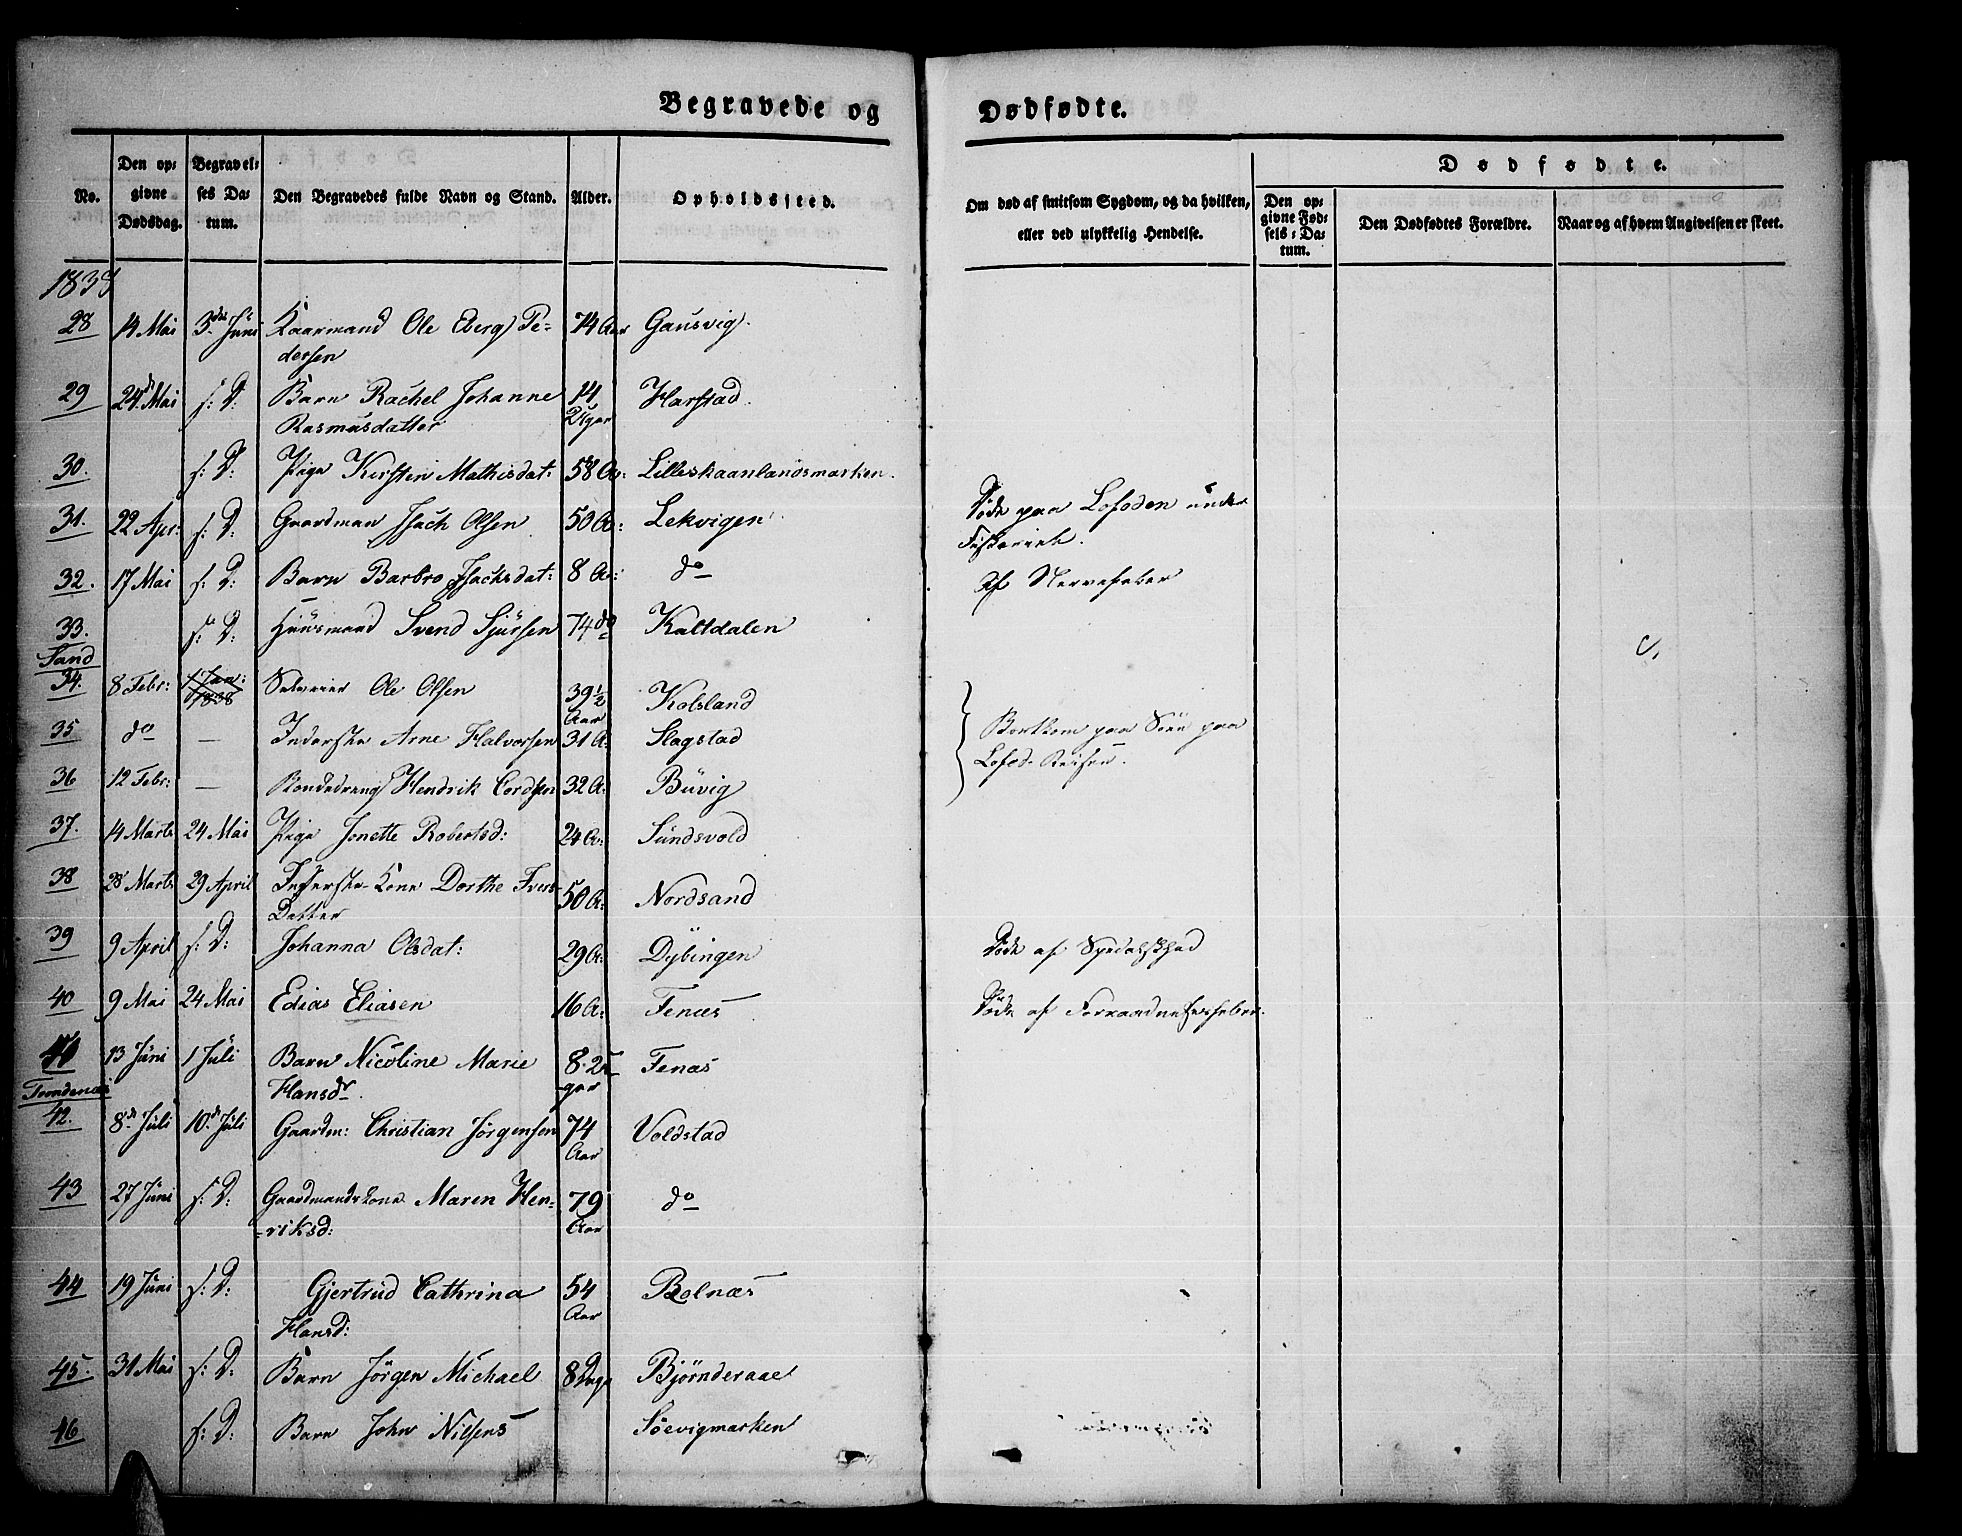 Begravede og Dødfødte.
No. Den opgivne Dødsdag. Begravelses Datum. Den Begravedes fulde Navn og Stand. Alder. Opholdssted. Om død af smitsom Sygdom, og da hvilken, eller ved ulykkelig Hendelse. Dødfødte. Den opgivne Fødsels-Datum. Den Dødfødtes Forældre. Naar og af hvem Angivelsen er skeet.
1838
28 14 Mai 3die Juni Kaarmand Ole Eberg Pe- 74 Aar Gausvig.
dersen
29 24d Mai s: D: Barn Rachel Johanne 14 Harstad.
Rasmusdatter Uger
30. s: D: Pige Kirstin Mathisdat: 58 Aar: Lilleskaanlandsmarken.
31. 22 Apr: s: D: Gaardman Isach Olsen 50 A: Lekvigen Døde paa Lofoden under
Fiskeriet.
32. 17 Mai s: D: Barn Barbro Isachsdat: 8 A: do Af Nervefeber
33. s: D: Huusmand Svend Sjursen 74 do Kaltdalen
Sand
34. 8 Febr: 1 Jan: 1838 Ole Olsen 39 1/2 Aar Kolsland
35 do — Inderste Arne Halvorsen 31 A: Slagstad Bortkom paa Søen paa
36 12 Febr: — Bondedreng Hendrik Cordsen 32 A: Buvig Lofod-Reisen.
37. 14 Marts 24 Mai Pige Jenette Robertsd: 24 A: Sundsvold
38 28 Marts 29 April Inderste-Kone Dorthe Ivers- 50 A: Nordsand
Datter
39 9 April s: D: Johanna Olsdat: 29 A: Dybingen Døde af Spedalskhed
40 9 Mai 24 Mai Edias Eliasen 16 A: Fenæs Døde af Forraadnelsesfeber.
41 13 Juni 1 Juli Barn Nicoline Marie 8 Fenæs
Hansdr.
Trondenæs
42. 8de Juli 10de Juli Gaardm: Christian Jørgensen 74 Aar Voldstad
43 27 Juni s: D: Gaardmandskone Maren Hen- 79 do
riksd: Aar
44 19 Juni s: D: Gjertrud Cathrina 54 Bolnæs
Hansd: Aar
45. 31 Mai s: D: Barn Jørgen Michael 8 Dage Bjørnderaae
46 s: D: Barn John Nilsen Søevigmarken